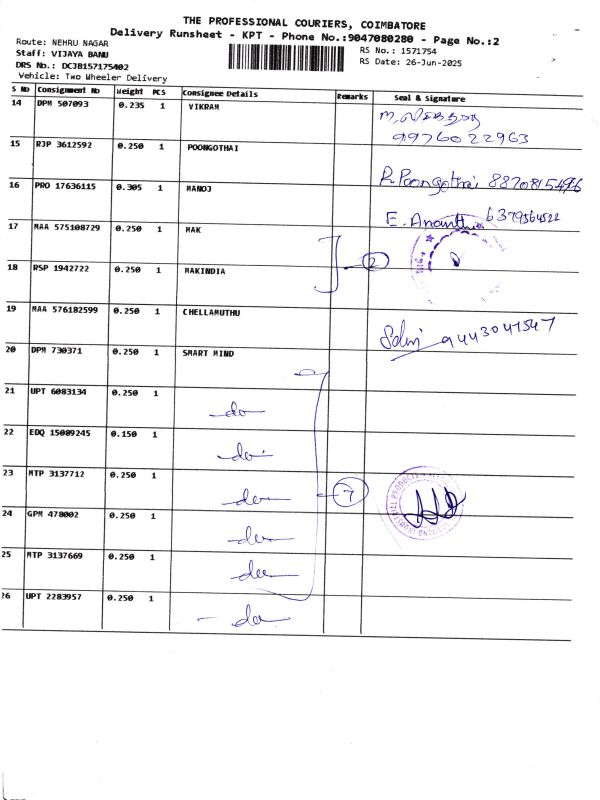 THE PROFESSIONAL COURIERS, COIMBATORE
Delivery Runsheet - KPT - Phone No.:9047080280 - Page No.:2
Route: NEHRU NAGAR
Staff: VIJAYA BANU
RS No.: 1571754
DRS No.: DCJB157175402
RS Date: 26-Jun-2025
Vehicle: Two Wheeler Delivery
S No Consignment No Weight PCS Consignee Details Remarks Seal & Signature
14 DPM 507093 0.235 1 VIKRAM
9976022963
15 RJP 3612592 0.250 1 POONGOTHAI
P. Poongothai 8870815496
16 PRO 17636115 0.305 1 MANOJ
E. Ananthi 6379564522
17 MAA 575108729 0.250 1 MAK
2
18 RSP 1942722 0.250 1 MAKINDIA
19 MAA 576182599 0.250 1 CHELLAMUTHU
9443047547
20 DPM 730371 0.250 1 SMART MIND
21 UPT 6083134 0.250 1 do
22 EDQ 15089245 0.150 1 do
23 MTP 3137712 0.250 1 do 7
24 GPM 478002 0.250 1 do
25 MTP 3137669 0.250 1 do
26 UPT 2283957 0.250 1 do